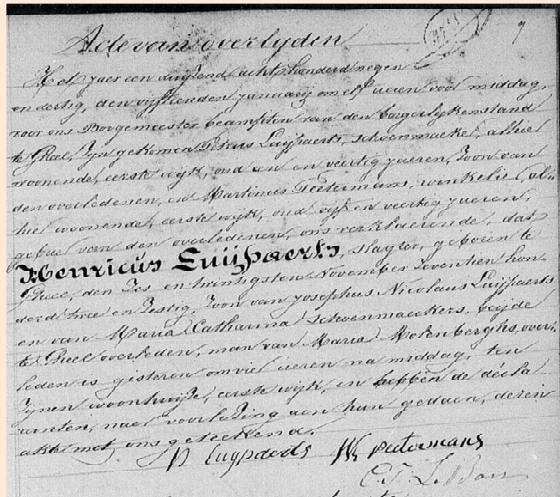 Acte van overlyden
Het jaer een duyzend acht honderd negen
en dertig, den vyftienden january om elf ueren voor middag,
voor ons Borgemeester beampten van den borgerlykenstand
te Gheel, zyn gekomen Petrus Luypaerts, schoenmaeker, alhier
woonende, eerste wyk, oud een en veertig jaeren, zoon van
den overledenen, en Martinus Peetermans, winkelier, al-
hier woonende, eerste wyk, oud vyf en veertig jaeren,
gebuer van den overledenen, ons verklaerende, dat
Henricus Luypaerts, slagter, geboren te
Gheel, den zes en twintigsten November zeventien hon-
derd twee en zestig, zoon van Josephus Nicolaus Luypaerts
en van Maria Catharina Schoenmaeckers, beyde
te Gheel overleden, man van Maria Molenberghs, over-
leden is gisteren om vier ueren na middag, ten
zynen woonhuyze, eerste wyk, en hebben de décla-
ranten, naer voorlezing aen hun gedaen, dezen
akt met ons geteekend.
P Luypaerts M Peetermans